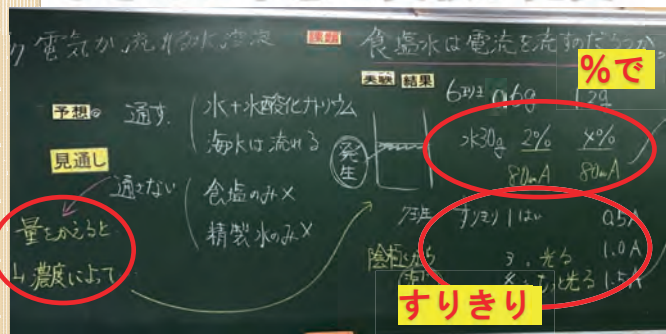 電気が流れる水溶液
課題 食塩水は電流を流すのだろうか
%で
実験 結果
6班 0.6g 1.2g
水30g 2% 4%
80mA 80mA
予想
通す
水+水酸化ナトリウム
海水は流れる
見通し
通さない
食塩のみ×
精製水のみ×
発生
量をかえると
濃度によって
7班 すりきり1ぱい 0.5A
陰極から 3 光る 1.0A
もっと光る 1.5A
すりきり